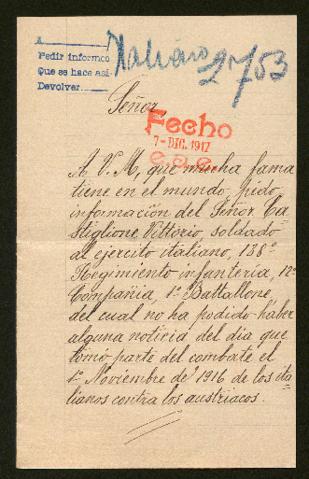 A
Pedir informes
Que se hace así
Devolver
Italiano
2753
Señor
Fecho
7-DIC. 1917
A V. M, que mucha fama
tiene en el mundo pido
información del Señor Ca-
stiglione Vittorio, soldado
al ejercito italiano, 138º
Regimiento infanteria, 12ª
Compañia, 1º Battallone,
del cual no ha podido haber
alguna noticia del dia que
tomo parte del combate el
1º Noviembre de 1916 de los ita-
lianos contra los austriacos.